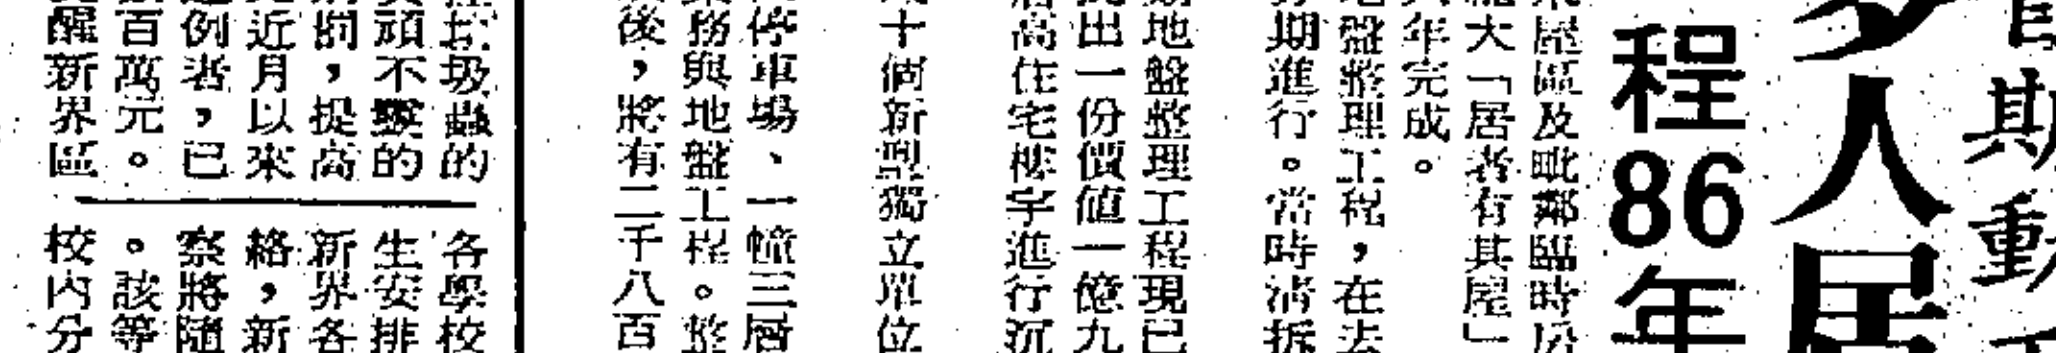 期動
多人居
程86年
屋區及毗鄰臨時房
龐大「居者有其屋」
年完成。
地盤整理工程，在去
期進行。當時清拆
期地盤整理工程現已
批出一份價值一億九
層高住宅樓宇進行沉
十個新型獨立單位
停車場、一幢三層
業務與地盤工程。整
後，將有二千八百
垃圾蟲的
頑不靈的
罰，提高
近月以來
例者，已
百萬元。
醒新界區
各學校
生安排
新界各
絡，新
察將隨
。該等
校內分